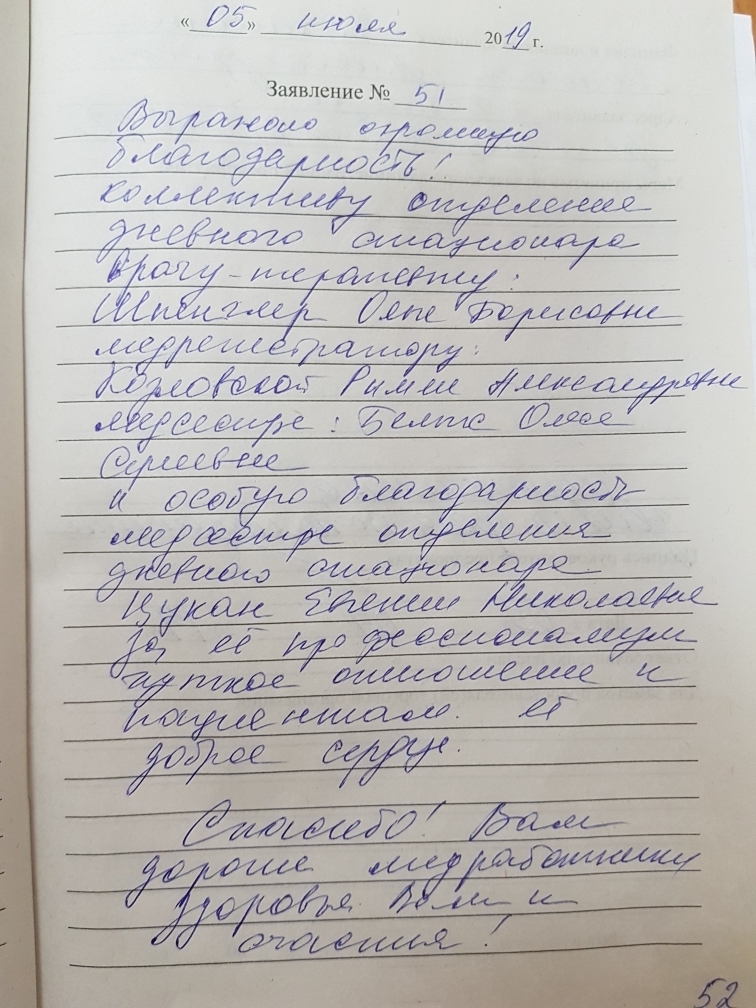 « 05 » июля 2019 г.
Заявление № 51
Выражаю огромную
благодарность!
коллективу отделение
дневного стационара
врачу-терапевту:
Шпенглер Ольге Борисовне
медрегистратору:
Козловской Римме Александровне
медсестре: Олесе
Сергеевне
и особую благодарность
медсестре отделения
дневного стационара
Цукан Евгении Николаевне
За её профессионализм
чуткое отношение к
пациентам. её
доброе сердце.
Спасибо! Вам
дорогие медработники
здоровья Вам и
счастия!
52